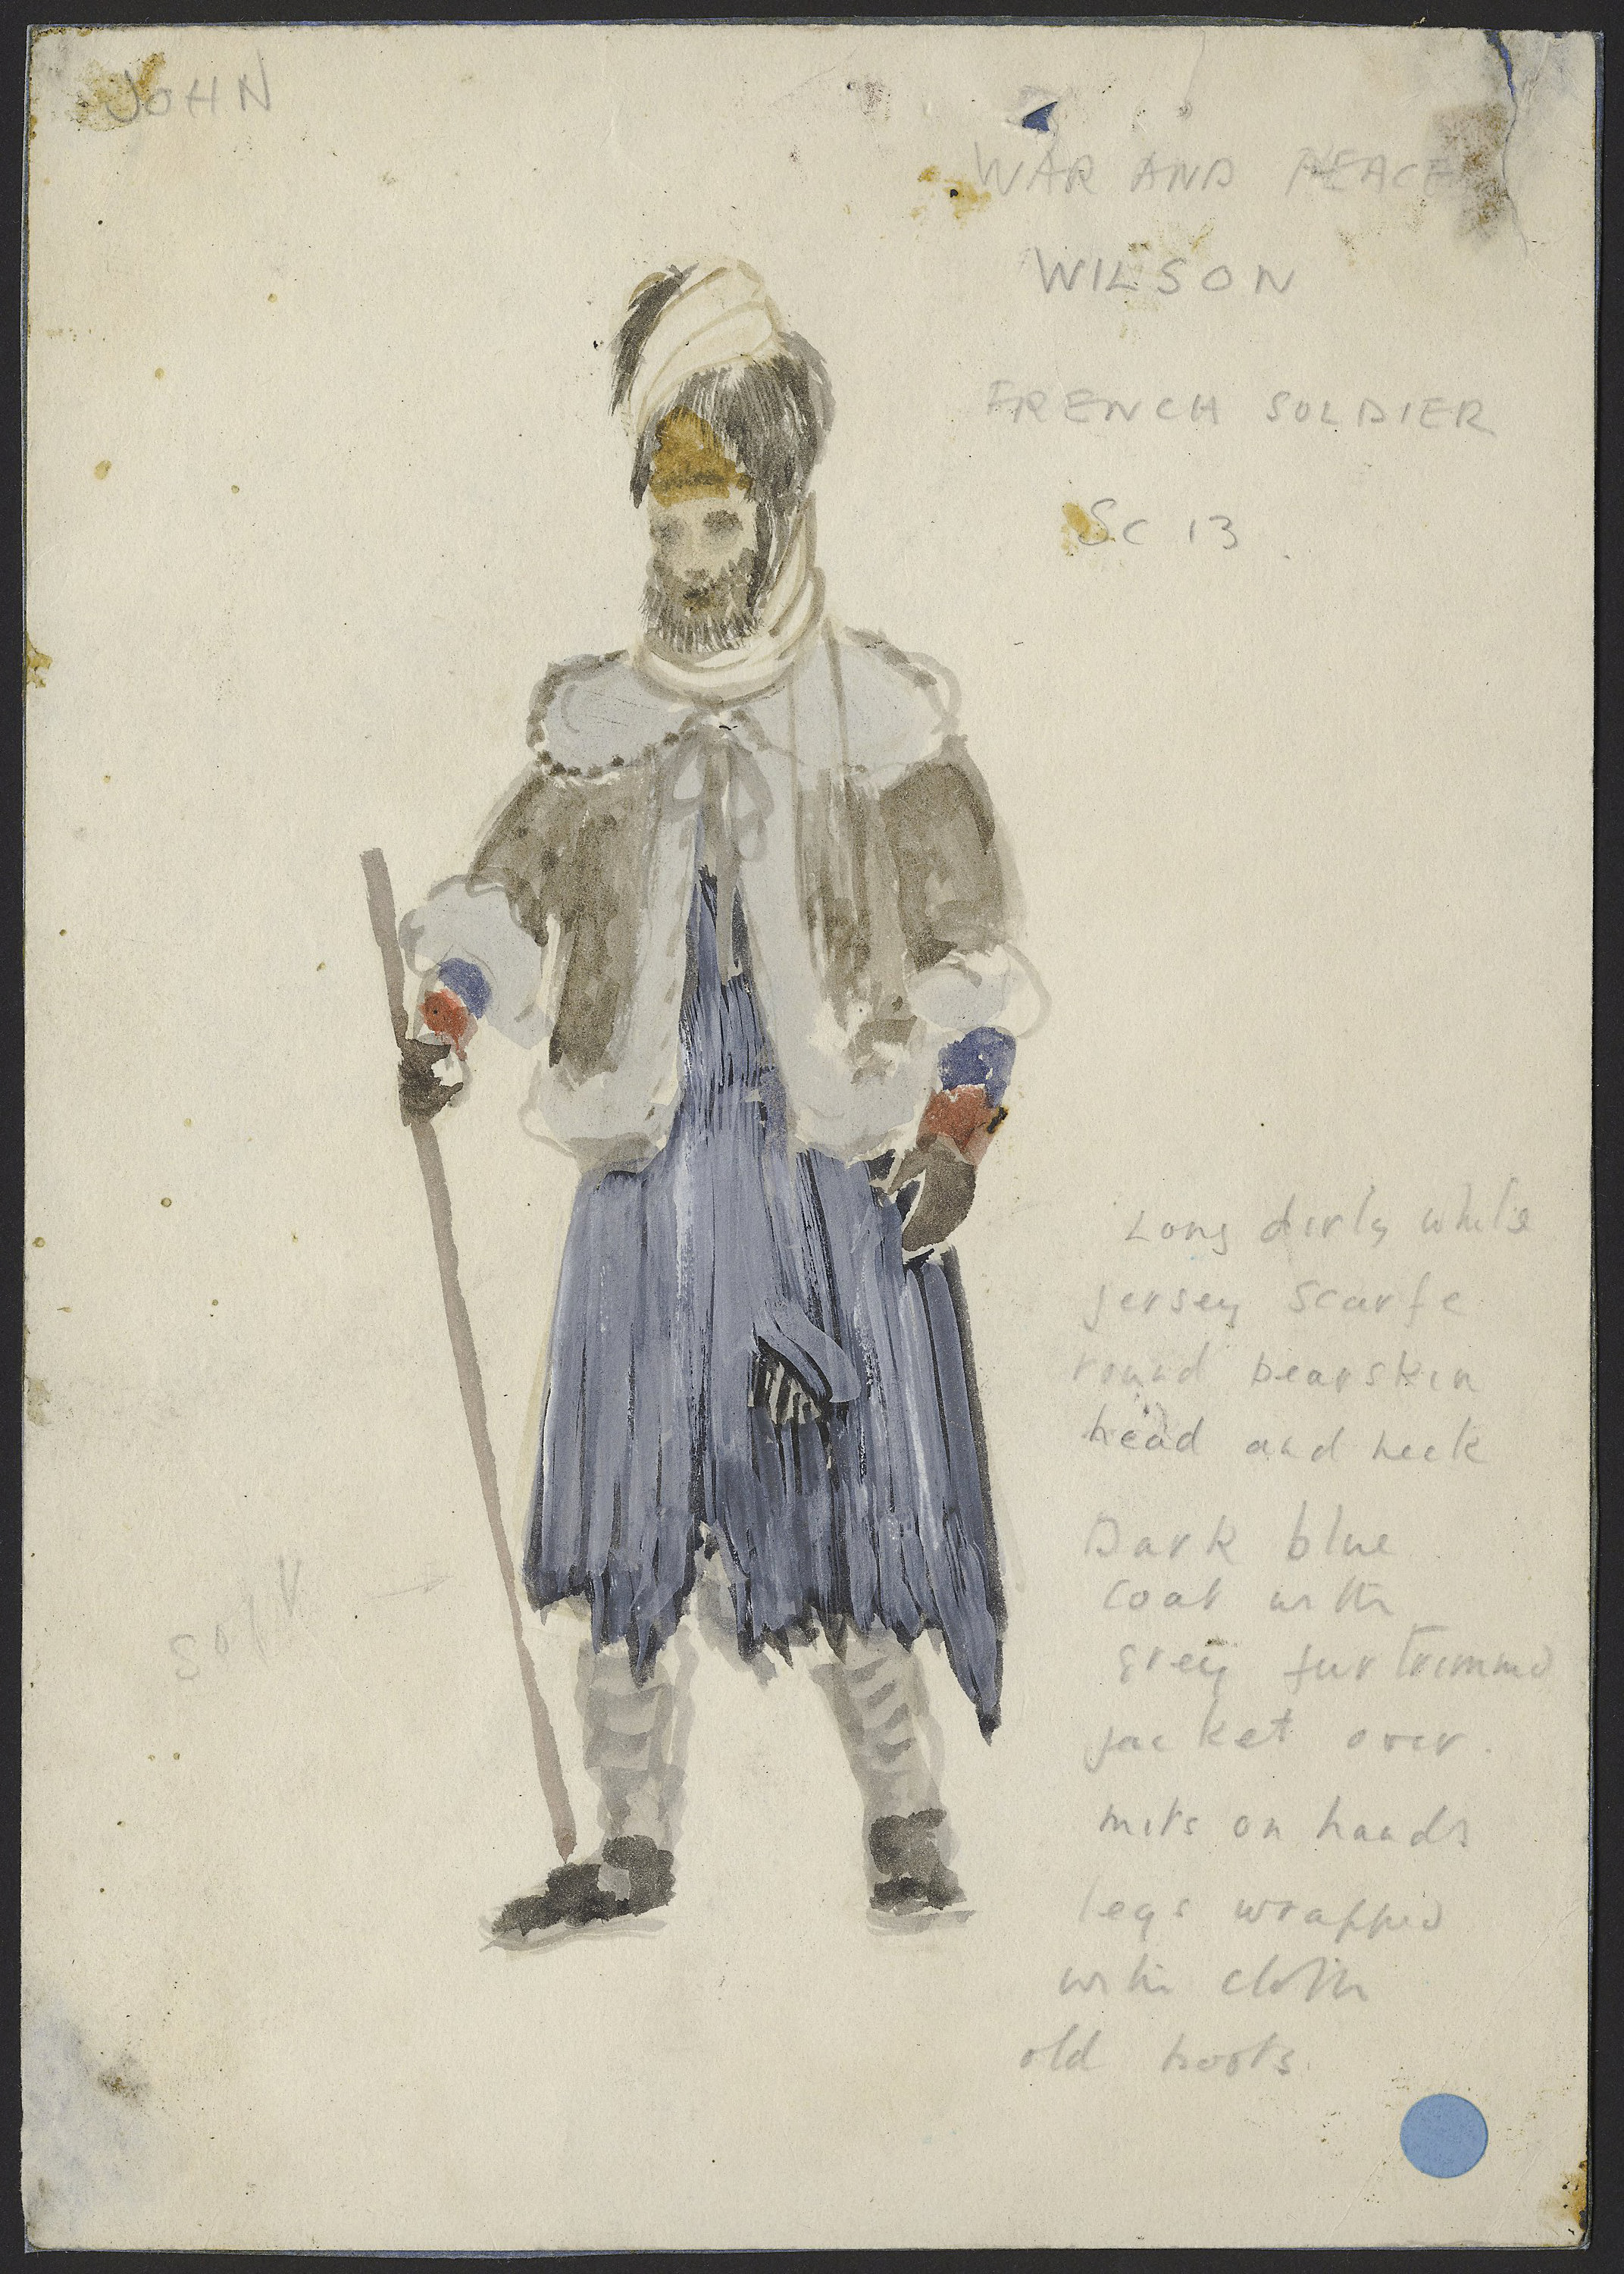 JOHN
WAR AND PEACE
WILSON
FRENCH SOLDIER
Sc 13.
Long dirty white
jersey scarfe
round bearskin
head and neck
Dark blue
coat with
grey fur trimmed
jacket over.
mits on hands
legs wrapped
with cloth
old boots